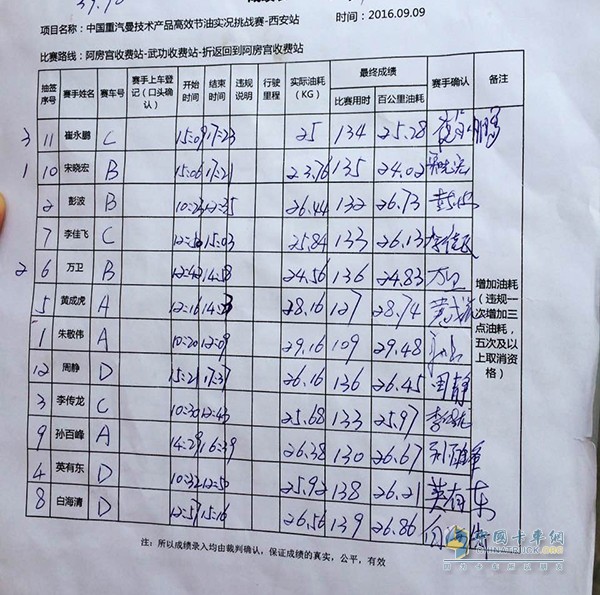 项目名称：中国重汽曼技术产品高效节油实况挑战赛-西安站 时间：2016.09.09
比赛路线：阿房宫收费站-武功收费站-折返回到阿房宫收费站
抽签序号 赛手姓名 赛车号 赛手上车登记（口头确认） 开始时间 结束时间 违规说明 行驶里程 实际油耗（KG） 最终成绩 比赛用时 百公里油耗 赛手确认 备注
3 11 崔永鹏 C 15:09 17:23 25 134 25.28
1 10 宋晓宏 B 15:06 17:21 23.76 135 24.02
2 彭波 B 10:23 12:35 26.44 132 26.73
7 李佳飞 C 12:50 15:03 25.84 133 26.13 李佳飞
2 6 万卫 B 12:42 14:58 24.56 136 24.83 万卫
5 黄成虎 A 12:16 14:23 28.16 127 28.74
1 朱敬伟 A 10:20 12:09 29.16 109 29.48
12 周静 D 15:21 17:37 26.16 136 26.45 周静
3 李传龙 C 10:30 12:43 25.68 133 25.97
9 孙百峰 A 14:29 16:39 26.38 130 26.67
4 英有东 D 10:32 12:50 25.92 138 26.21 英有东
8 白海清 D 12:57 15:16 26.56 139 26.86
增加油耗（违规一次增加三点油耗，五次及以上取消资格）
注：所以成绩录入均由裁判确认，保证成绩的真实，公平，有效
中国卡车网
CHINATRUCK.COM